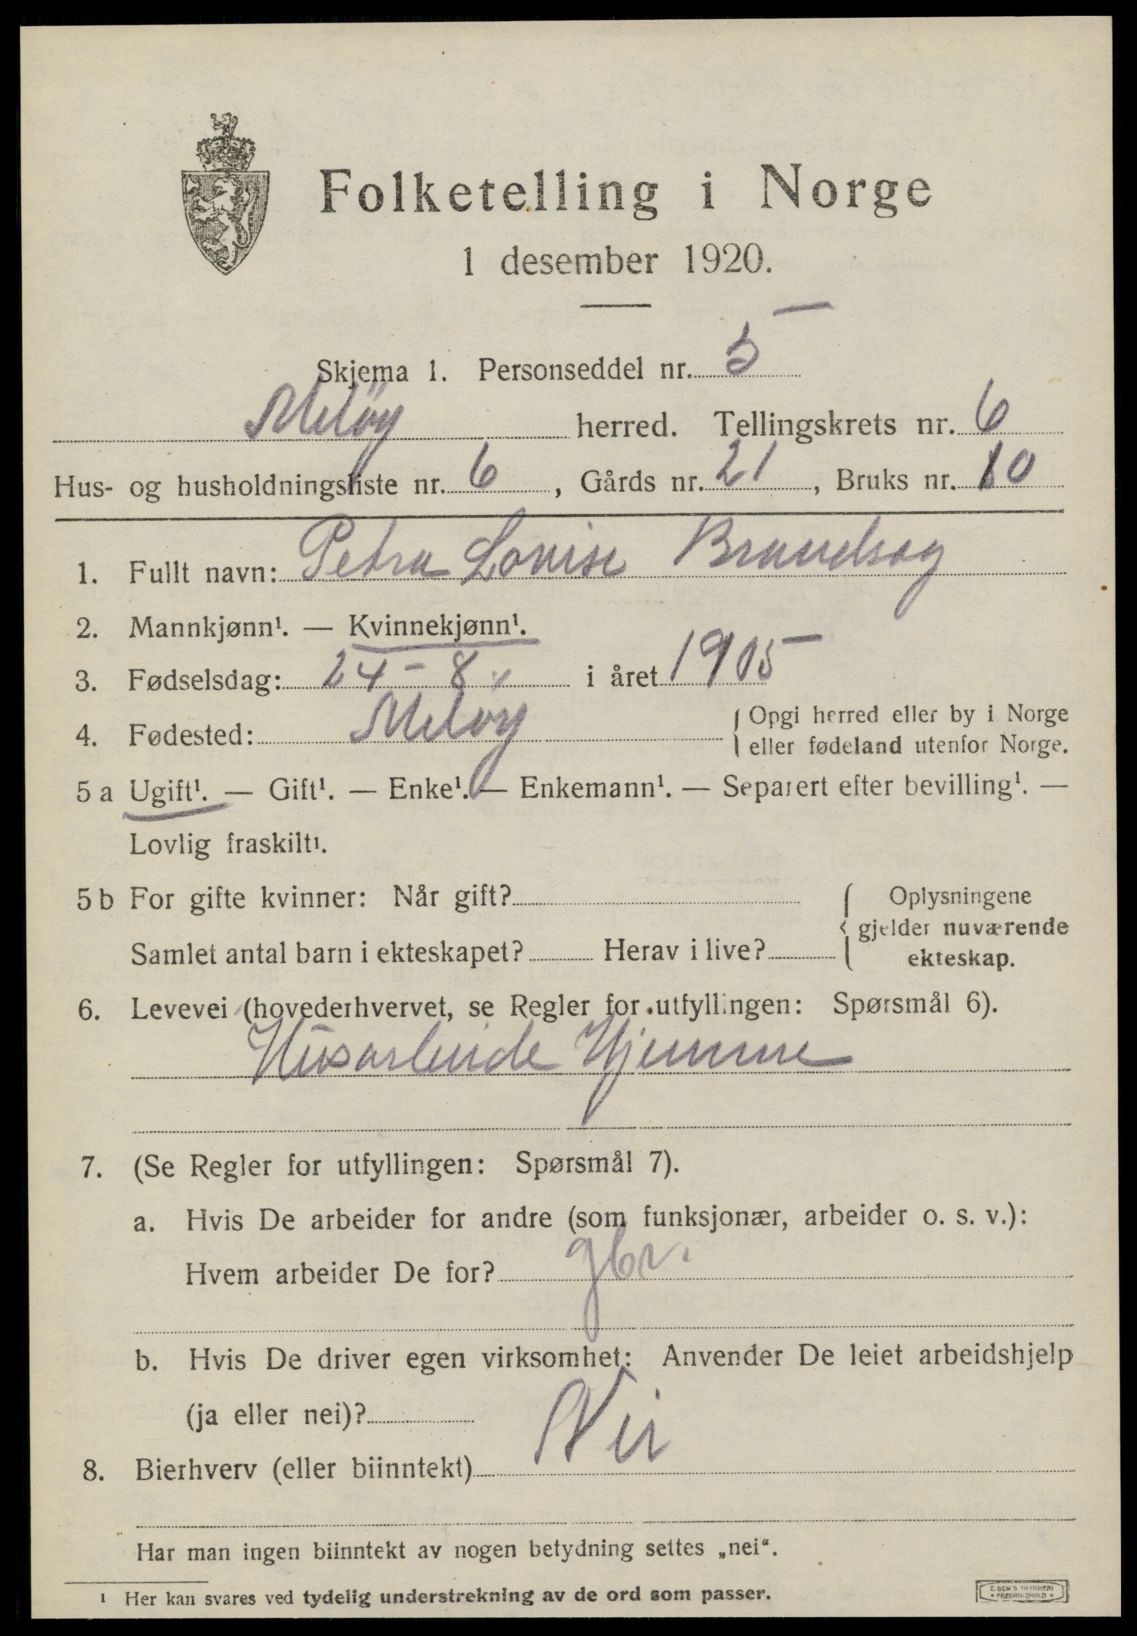 Folketelling i Norge
1 desember 1920.
Skjema 1. Personseddel nr. 5
Meløy herred. Tellingskrets nr. 6
Hus- og husholdningsliste nr. 6, Gårds nr. 21, Bruks nr. 10
1. Fullt navn: Petra Lovise
2. Mannkjønn¹. — Kvinnekjønn¹.
3. Fødselsdag: 24 - 8 i året 1905
4. Fødested: Meløy { Opgi herred eller by i Norge
eller fødeland utenfor Norge.
5 a Ugift¹. — Gift¹. — Enke¹. — Enkemann¹. — Separert efter bevilling¹. —
Lovlig fraskilt¹.
5 b For gifte kvinner: Når gift? { Oplysningene
gjelder nuværende
Samlet antal barn i ekteskapet? Herav i live? ekteskap.
6. Levevei (hovederhvervet, se Regler for utfyllingen: Spørsmål 6).
Husarbeide Hjemme
7. (Se Regler for utfyllingen: Spørsmål 7).
a. Hvis De arbeider for andre (som funksjonær, arbeider o. s. v.):
Hvem arbeider De for? gbr.
b. Hvis De driver egen virksomhet: Anvender De leiet arbeidshjelp
(ja eller nei)?
8. Bierhverv (eller biinntekt) Nei
Har man ingen biinntekt av nogen betydning settes „nei“.
¹ Her kan svares ved tydelig understrekning av de ord som passer.